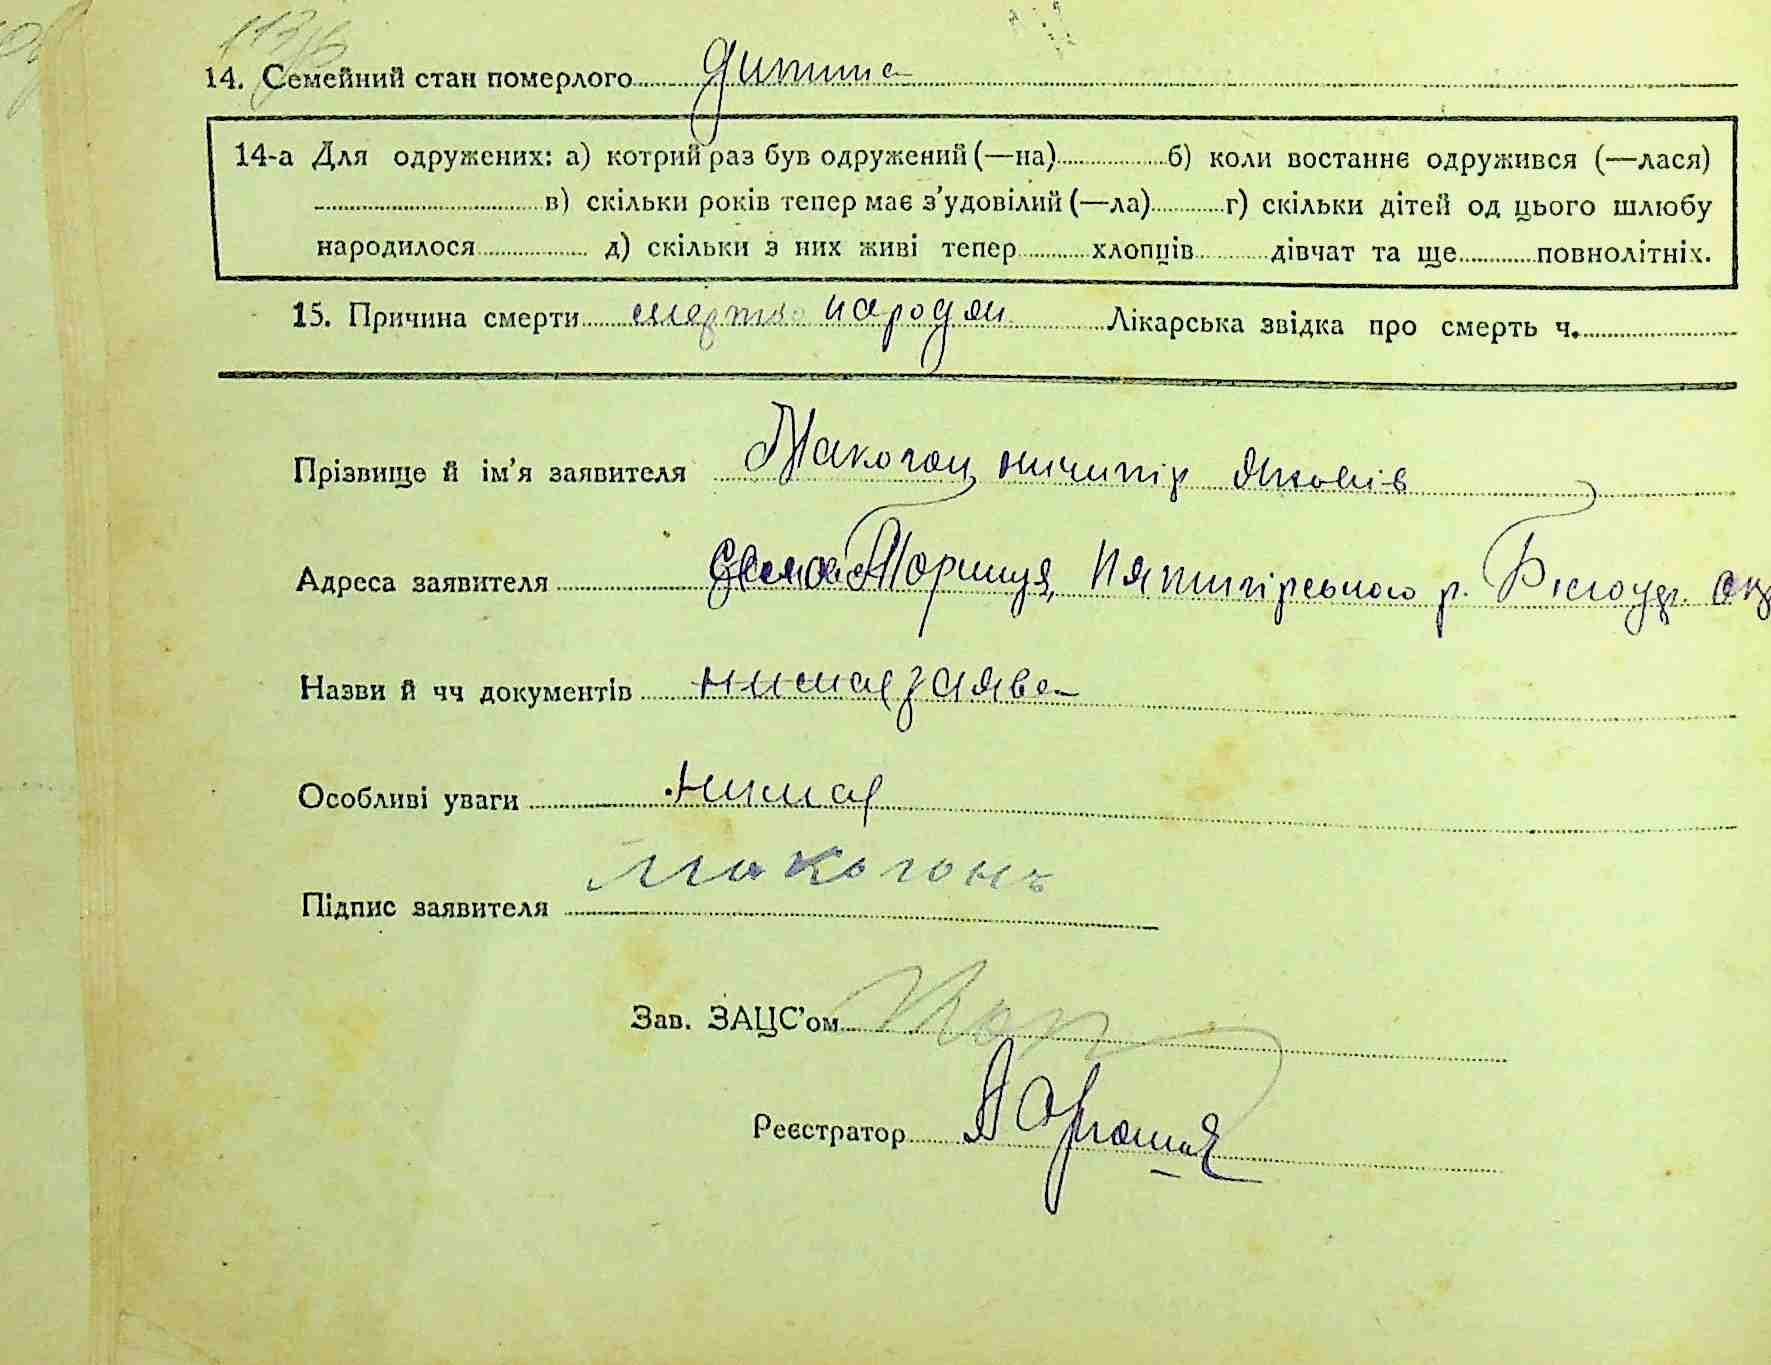 113
14. Семейний стан померлого дитина
14-а Для одружених: а) котрий раз був одружений (—на) б) коли востаннє одружився (—лася)
в) скільки років тепер має з'удовілий (—ла) г) скільки дітей од цього шлюбу
народилося д) скільки з них живі тепер хлопців дівчат та ще повнолітніх.
15. Причина смерти мертво народж Лікарська звідка про смерть ч.
Прізвище й ім'я заявителя Макогон Ничипір Яковів
Адреса заявителя Село Ториця, Пятигірського р. Білоцер. окр
Назви й чч документів нимає заява
Особливі уваги нимає
Підпис заявителя Макогонъ
Зав. ЗАЦС'ом
Реєстратор